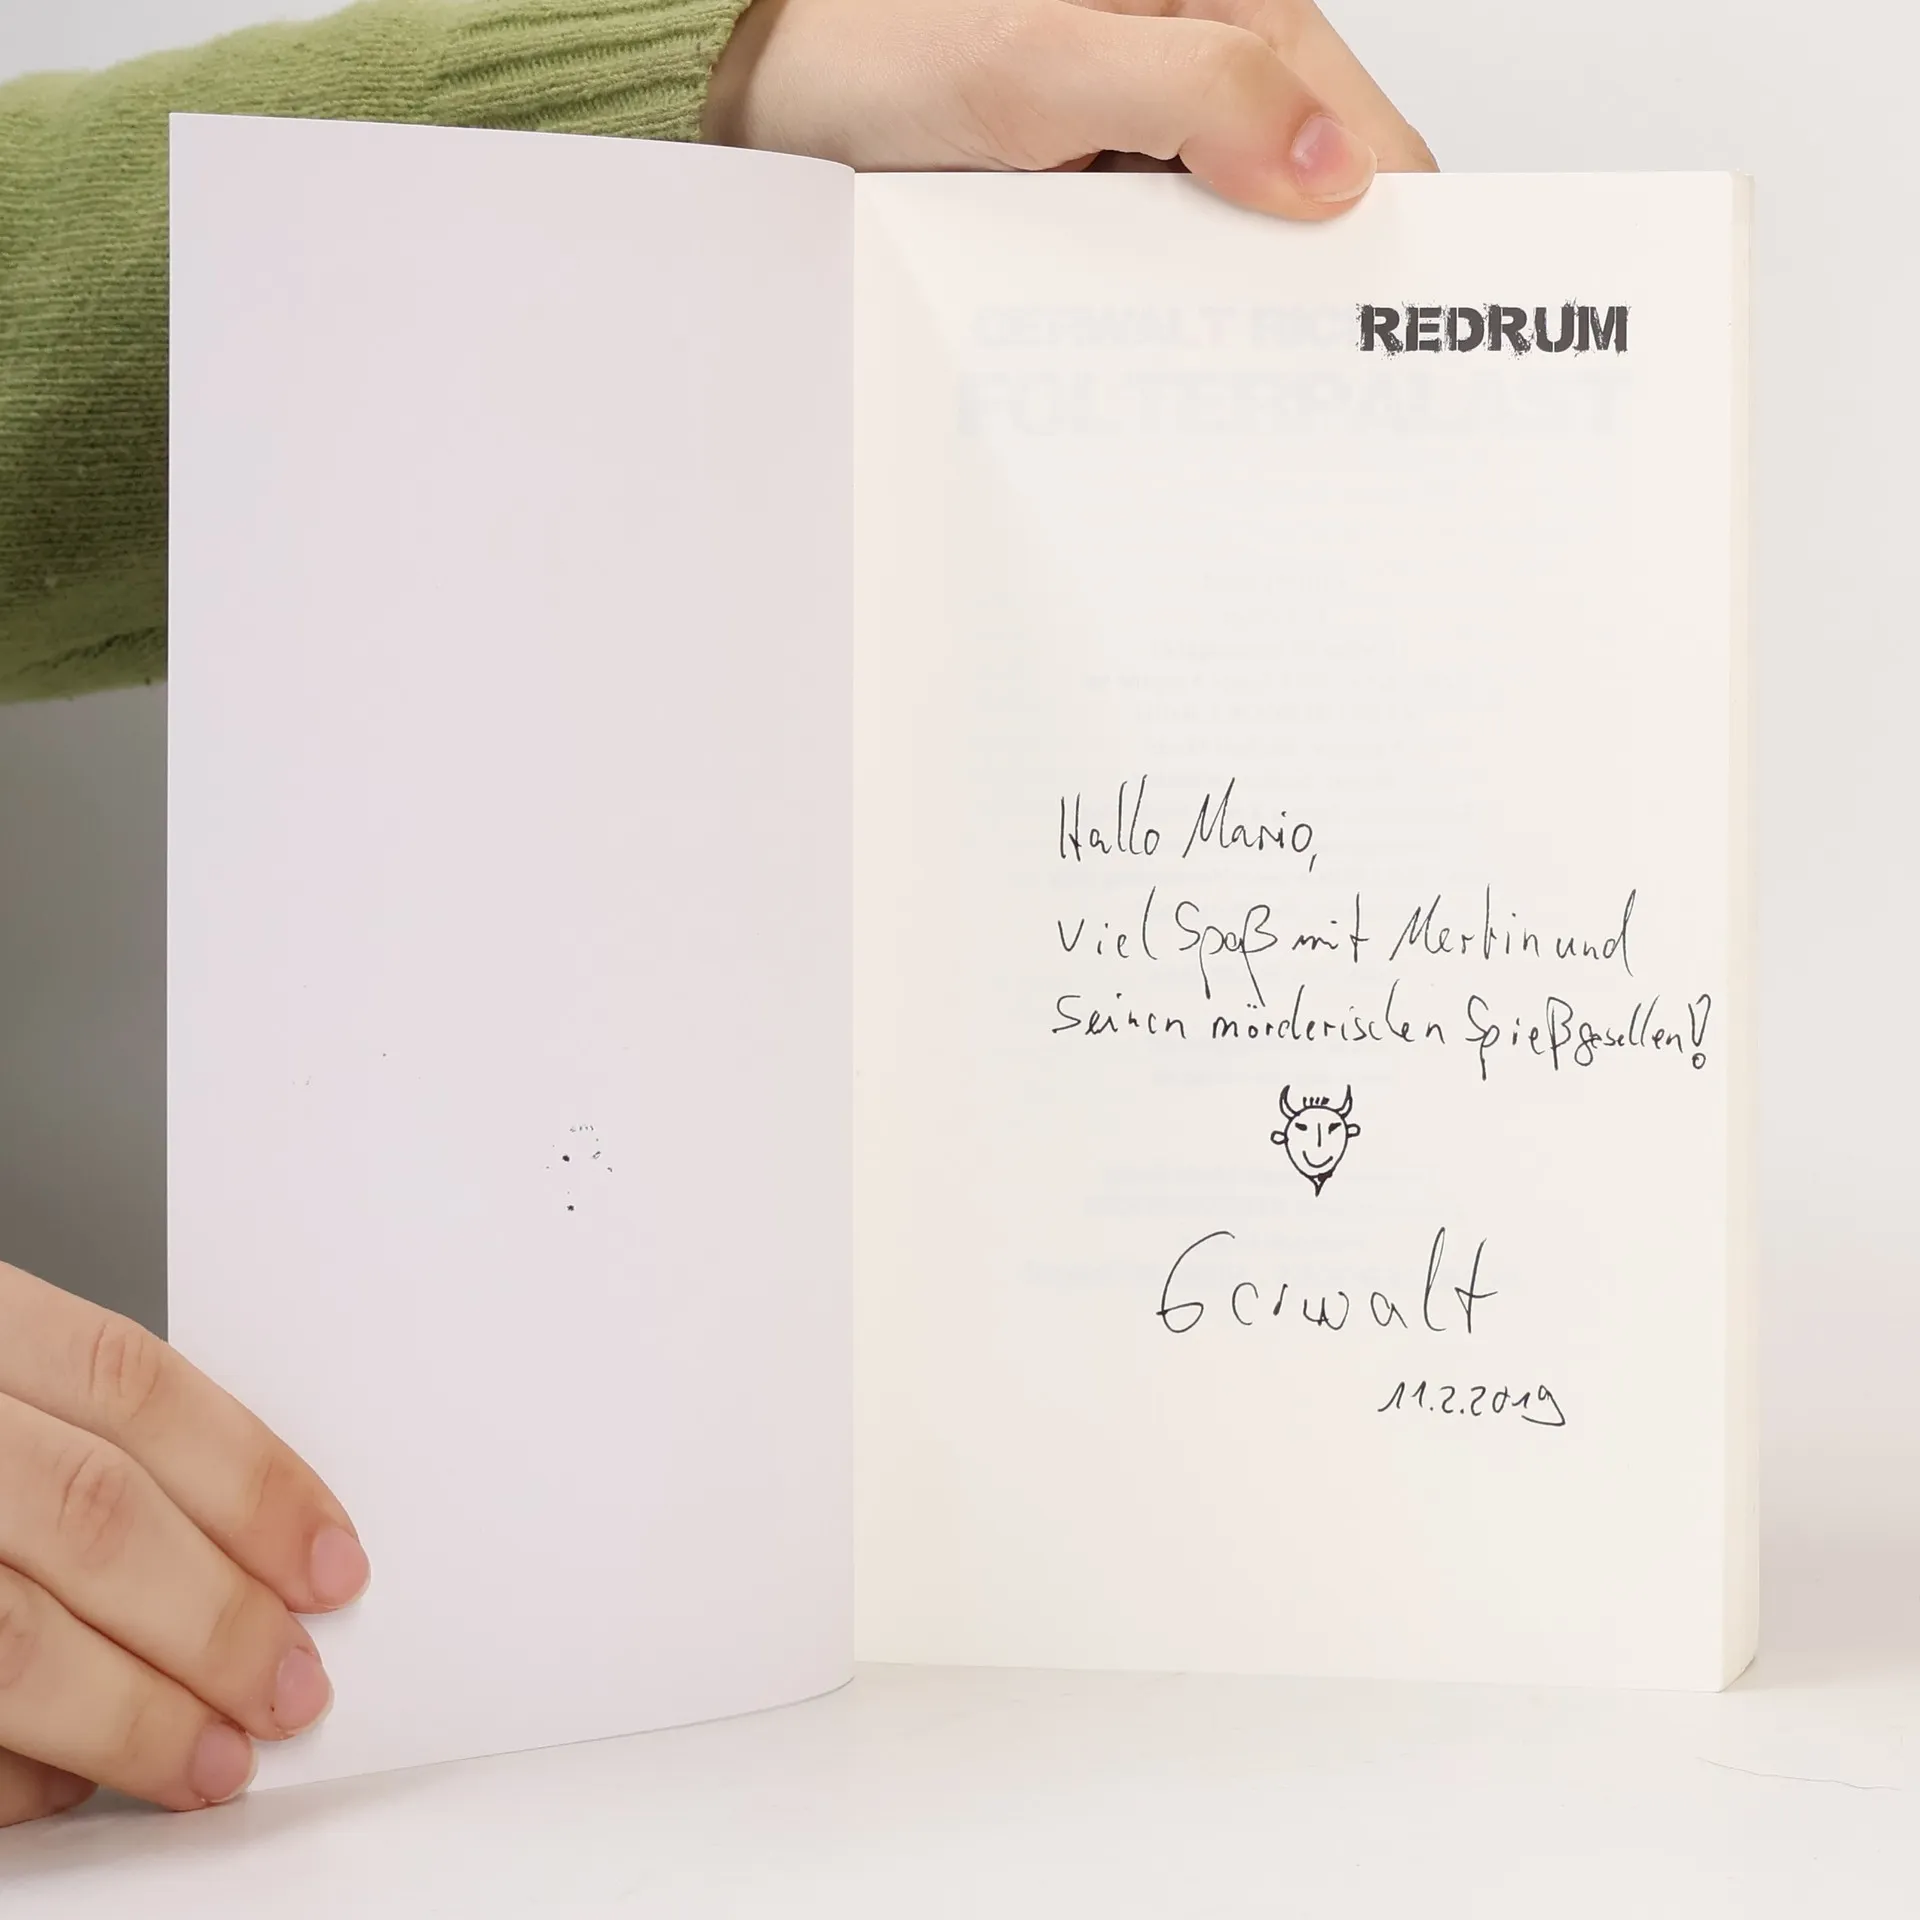 REDRUM
FOLTERPALAST
Hallo Mario,
viel Spaß mit Merbin und
seinen mörderischen Spießgesellen!
Gerwalt
11.2.2019